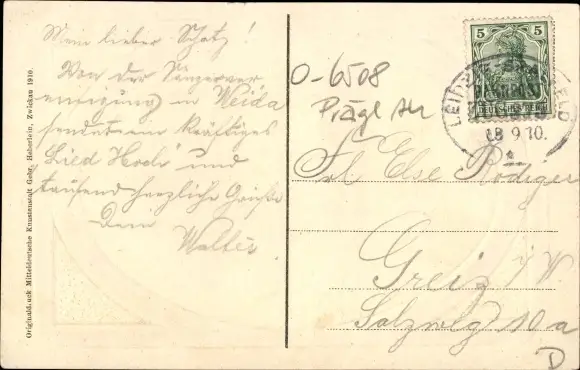 Mein lieber Schatz!
Von der Sängerver
einigung in Weida
sendet ein kräftiges
Lied Hoch und
tausend herzliche Grüße
Dein
Walter
Originaldruck Mitteldeutsche Kunstanstalt Gebr. Heberlein, Zwickau 1910.
O-6508
Präge AK
5 5
DEUTSCHES REICH
LEIPZIG
18 9.10.
Frl. Else Rödiger
Greiz i V.
Salzweg 10a
D